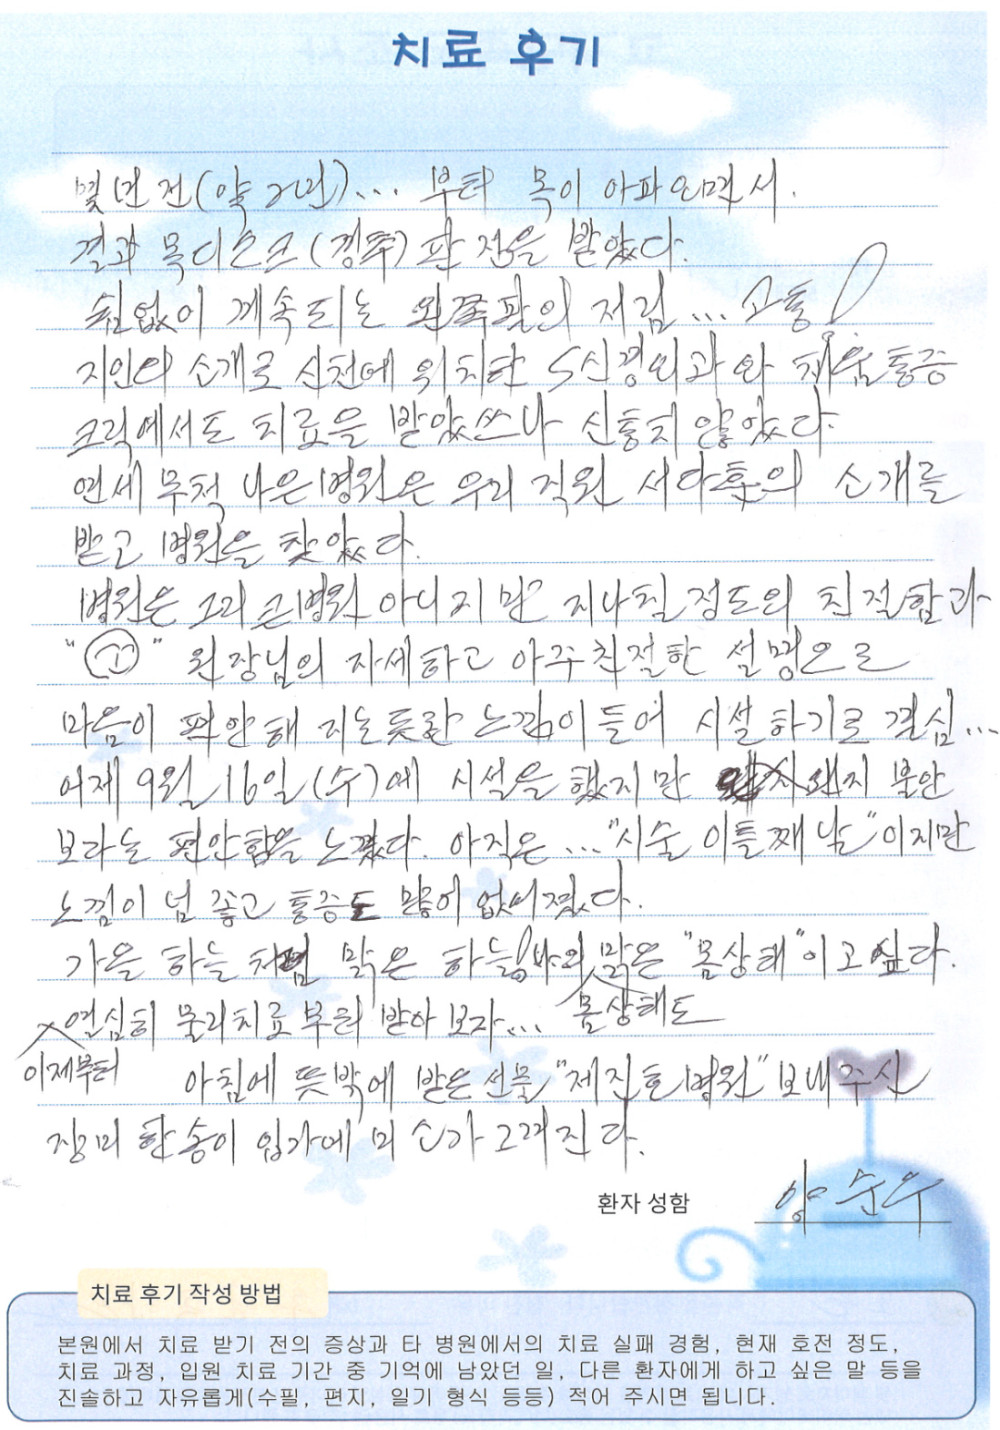 치료 후기
몇년 전(약 2년)... 부터 목이 아파오면서.
결과 목디스크(경추) 판정을 받았다.
쉼없이 계속되는 왼쪽팔의 저림... 고통!
지인의 소개로 신천에 위치한 S신경외과와 채움통증
크릭에서도 치료을 받았쓰나 신통치 않았다.
연세 무척 나은병원은 우리 직원 서다훈의 소개를
받고 병원을 찾았다.
병원은 그리 큰병원 아니지만 지나칠 정도의 친절함과
" " 원장님의 자세하고 아주 친절한 설명으로
마음이 편안해 지는듯한 느낌이 들어 시설하기로 결심...
어제 9월 16일(수)에 시설을 했지만 왠지 불안
보라는 편안함을 느꼈다. 아직은... "시술 이틀째 날"이지만
느낌이 넘 좋고 통증도 많이 없어졌다.
가을 하늘 처럼 맑은 하늘! 맑은 "몸상태"이고 싶다.
열심히 물리치료 부터 받아 보자... 몸상태도
이제부터 아침에 뜻밖에 받은 선물 "제진호 병원" 보내주신
장미 한송이 입가에 미소가 그려진다.
환자 성함 양순우
치료 후기 작성 방법
본원에서 치료 받기 전의 증상과 타 병원에서의 치료 실패 경험, 현재 호전 정도,
치료 과정, 입원 치료 기간 중 기억에 남았던 일, 다른 환자에게 하고 싶은 말 등을
진솔하고 자유롭게(수필, 편지, 일기 형식 등등) 적어 주시면 됩니다.